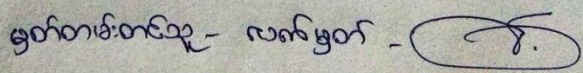 မှတ်တမ်းတင်သူ - လက်မှတ် -